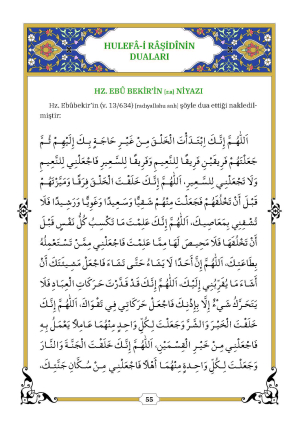 HULEFÂ-İ RÂŞİDÎNİN
DUALARI
HZ. EBÛ BEKİR'İN [ra] NİYAZI
Hz. Ebûbekir'in (v. 13/634) (radıyallahu anh) şöyle dua ettiği nakledil-
miştir:
اَللّٰهُمَّ اِنَّكَ اِبْتَدَأْتَ الْخَلْقَ مِنْ غَيْرِ حَاجَةٍ بِكَ اِلَيْهِمْ ثُمَّ
جَعَلْتَهُمْ فَرِيقَيْنِ فَرِيقًا لِلنَّعِيمِ وَفَرِيقًا لِلسَّعِيرِ فَاجْعَلْنِي لِلنَّعِيمِ
وَلَا تَجْعَلْنِي لِلسَّعِيرِ. اَللّٰهُمَّ اِنَّكَ خَلَقْتَ الْخَلْقَ فِرَقًا وَمَيَّزْتَهُمْ
قَبْلَ اَنْ تَخْلُقَهُمْ فَجَعَلْتَ مِنْهُمْ شَقِيًّا وَسَعِيدًا وَغَوِيًّا وَرَشِيدًا فَلَا
تُشْقِنِي بِمَعَاصِيكَ. اَللّٰهُمَّ اِنَّكَ عَلِمْتَ مَا تَكْسِبُ كُلُّ نَفْسٍ قَبْلَ
اَنْ تَخْلُقَهَا فَلَا مَحِيصَ لَهَا مِمَّا عَلِمْتَ فَاجْعَلْنِي مِمَّنْ تَسْتَعْمِلُهُ
بِطَاعَتِكَ. اَللّٰهُمَّ اِنَّ اَحَدًا لَا يَشَاءُ حَتَّى تَشَاءَ فَاجْعَلْ مَشِيئَتَكَ اَنْ
اَشَاءَ مَا يُقَرِّبُنِي اِلَيْكَ. اَللّٰهُمَّ اِنَّكَ قَدْ قَدَّرْتَ حَرَكَاتِ الْعِبَادِ فَلَا
يَتَحَرَّكُ شَيْءٌ اِلَّا بِاِذْنِكَ فَاجْعَلْ حَرَكَاتِي فِي تَقْوَاكَ. اَللّٰهُمَّ اِنَّكَ
خَلَقْتَ الْخَيْرَ وَالشَّرَّ وَجَعَلْتَ لِكُلِّ وَاحِدٍ مِنْهُمَا عَامِلًا يَعْمَلُ بِهِ
فَاجْعَلْنِي مِنْ خَيْرِ الْقِسْمَيْنِ. اَللّٰهُمَّ اِنَّكَ خَلَقْتَ الْجَنَّةَ وَالنَّارَ
وَجَعَلْتَ لِكُلِّ وَاحِدَةٍ مِنْهُمَا اَهْلًا فَاجْعَلْنِي مِنْ سُكَّانِ جَنَّتِكَ.
55